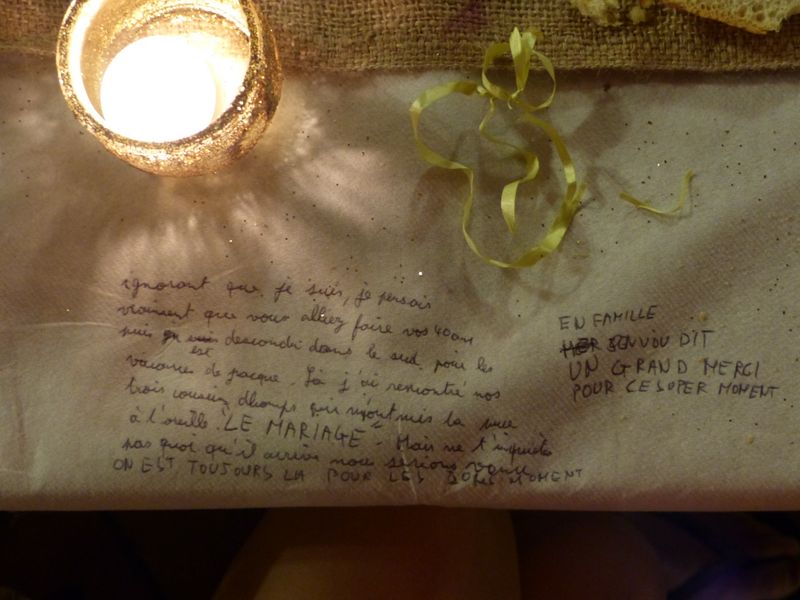 ignorant que je suis, je pensais
vraiment que vous alliez faire vos 40 ans
puis on est descondu dans le sud pour les
vacances de pacque. Là j'ai rencontré nos
trois cousins dhomps qui m'ont mis la puce
à l'oreille. "LE MARIAGE". Mais ne t'inquiète
pas quoi qu'il arrive nous serions venu
ON EST TOUJOURS LA POUR LES BONS MOMENT
EN FAMILLE
JENVOU DIT
UN GRAND MERCI
POUR CE SUPER MOMENT